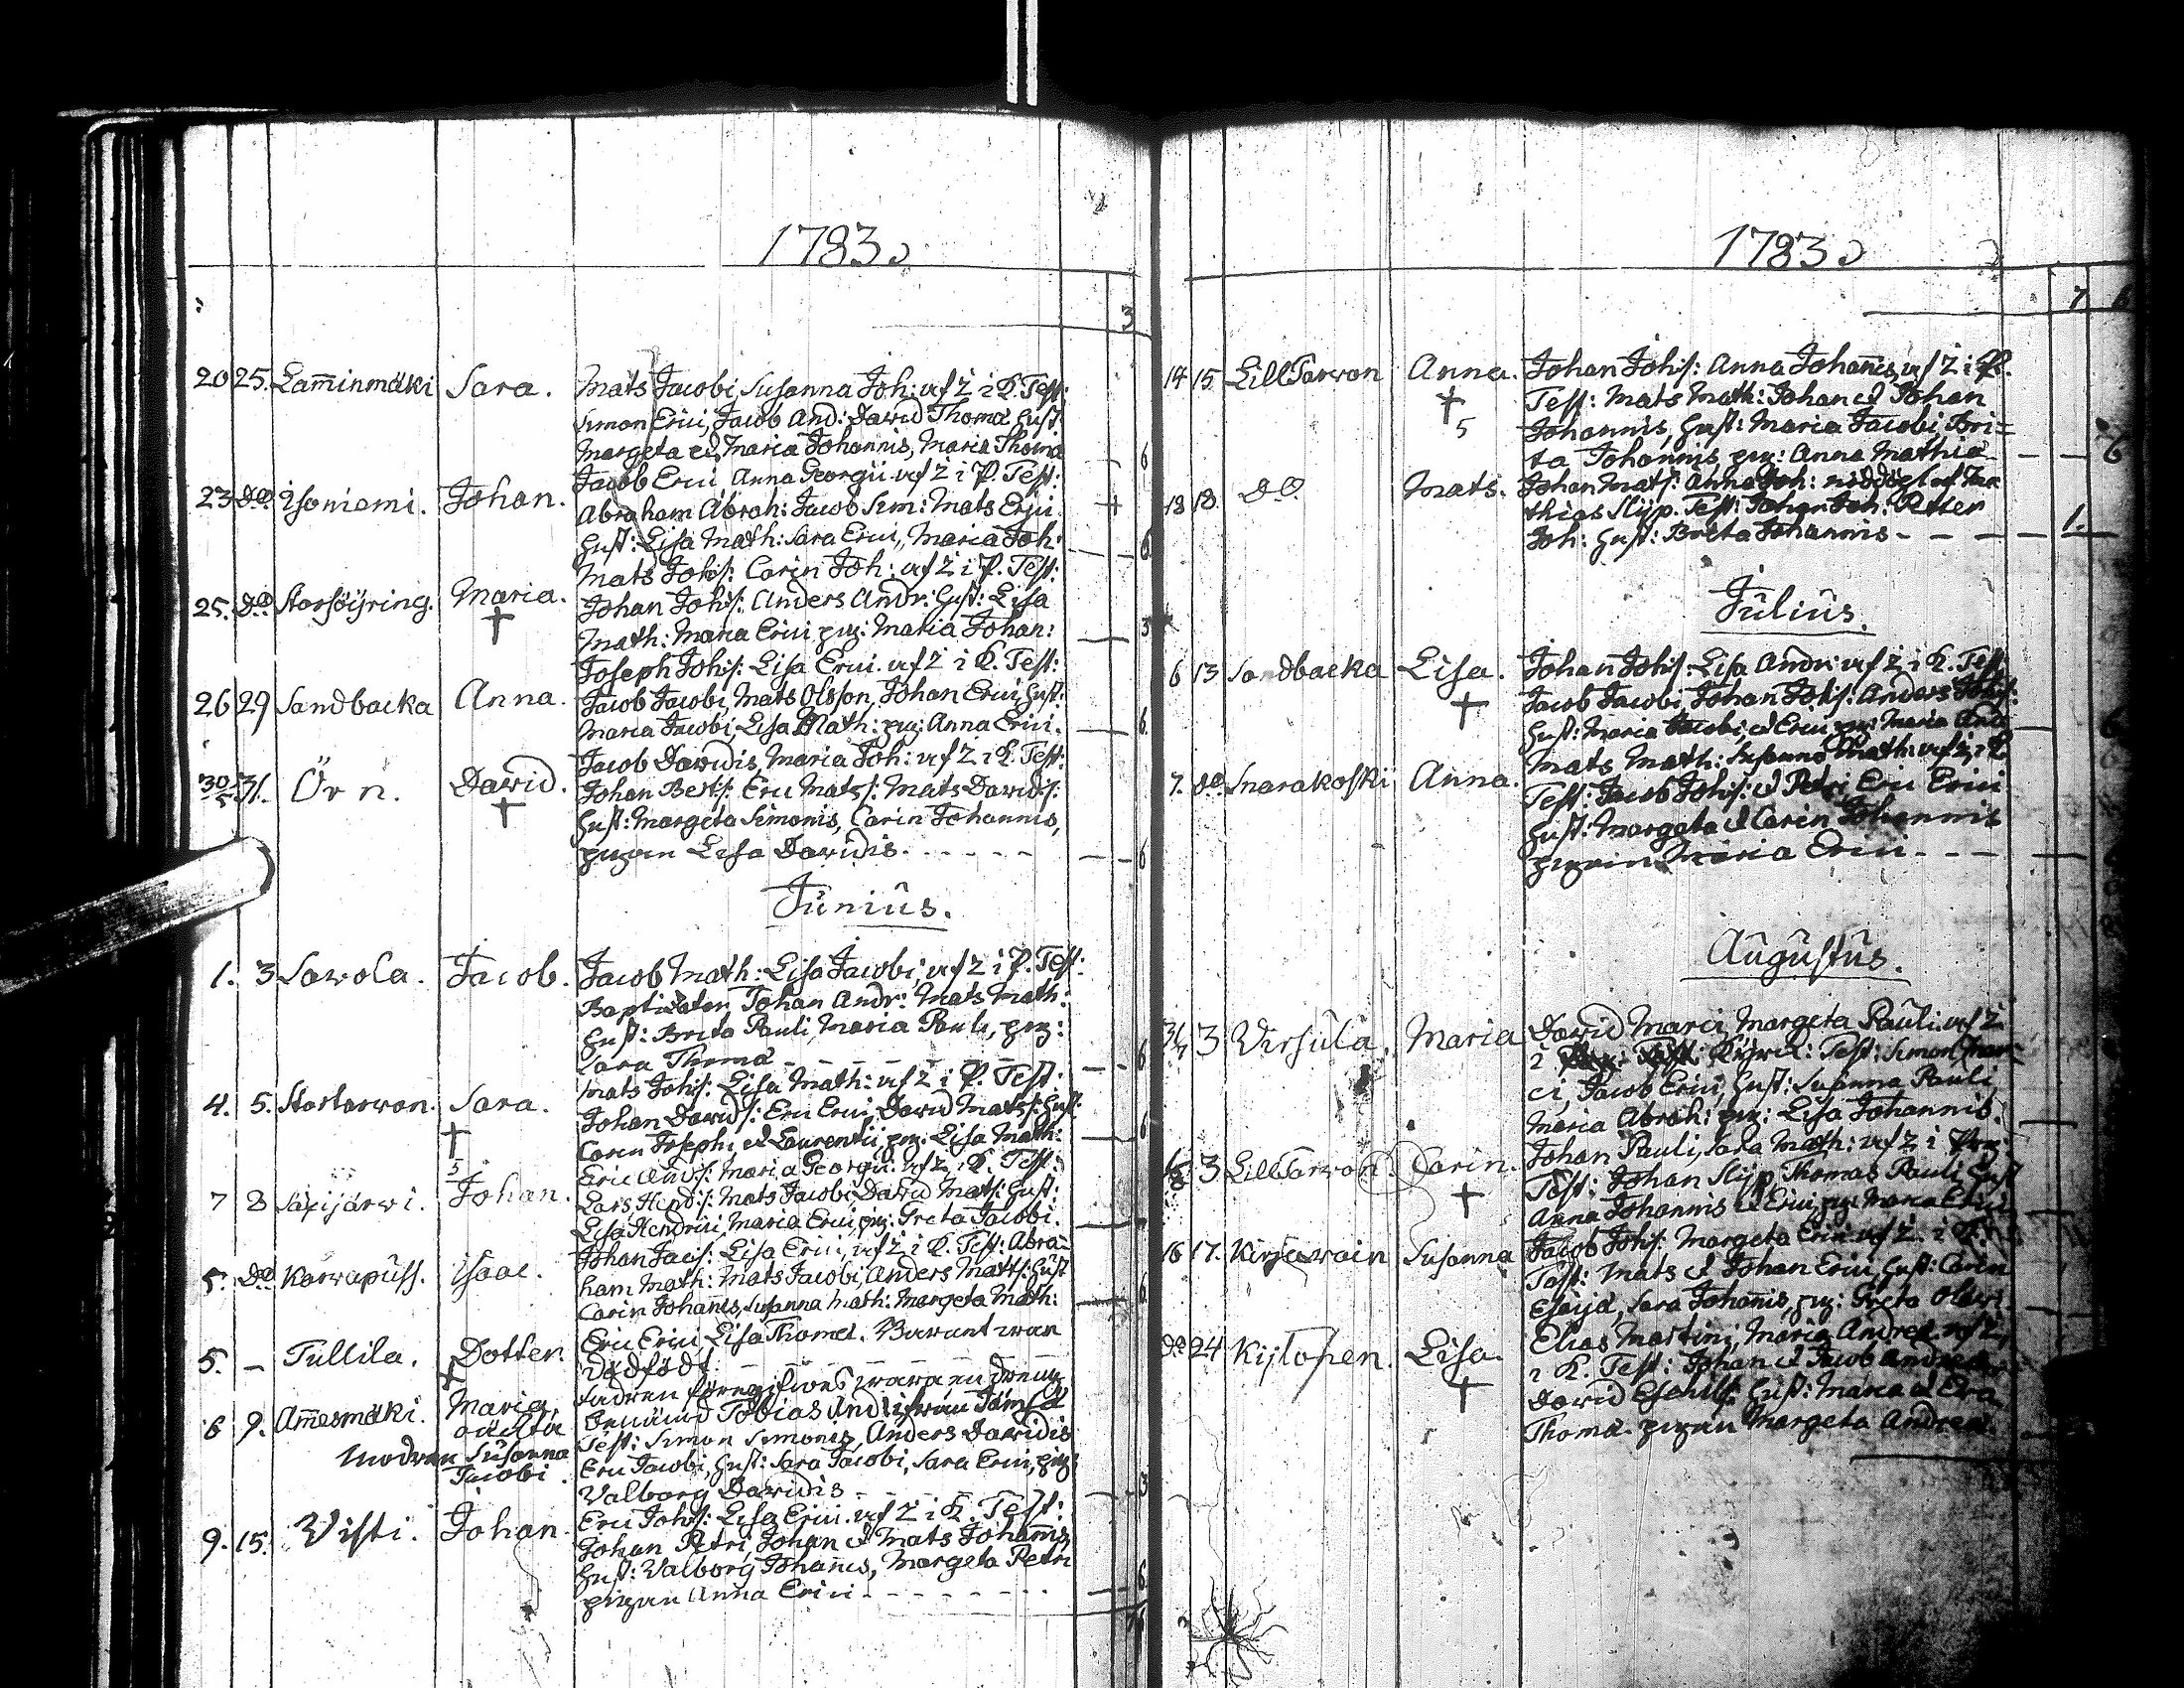 1783
3
20 25. Lam̄inmäki Sara. Mats Jacobi, Susanna Joh: uxf 2 i K. Test:
Simon Erici, Jacob And: David Thomæ Hust:
Margeta et Maria Johannis, Maria Thomæ 6
23 do Isoniemi. Johan. Jacob Erici Anna Georgii uxf 2 i P. Test:
Abraham Abrah: Jacob Sim: Mats Erici
Hust: Lisa Math: Sara Erici, Maria Joh: 6
25. do Storsöijring. Maria. Mats Johs: Carin Joh: uxf 2 i P. Test:
Johan Johs: Anders Andr: Hust: Lisa
Math: Maria Erici pig: Maria Johan: 3
26 29 Sandbacka Anna. Joseph Johs: Lisa Erici uxf 2 i K. Test:
Jacob Jacobi, Mats Olsson, Johan Erici, Hust:
Maria Jacobi, Lisa Math: pig: Anna Erici. 6
30/5 31. Örn. David. Jacob Davidis, Maria Joh: uxf 2 i K. Test:
Johan Berts: Eric Mats: Mats Davids:
Hust: Margeta Simonis, Carin Johannis,
pigan Lisa Davidis. 6
Junius.
1. 3 Savola. Jacob. Jacob Math: Lisa Jacobi, uxf 2 i P. Test:
Johan Andr: Mats Math:
Hust: Brita Pauli, Maria Pauli, pig:
Sara Thomæ 6
4. 5. Stortarvon. Sara. Mats Johs: Lisa Math: uxf 2 i P. Test:
Johan Davids: Eric Erici, David Mats: Hust:
Carin Josephi et Laurentii, pig: Lisa Math: 6
5
7 8 Säxijärvi. Johan. Eric Ands: Maria Georgii uxf 2 i K. Test:
Lars Hends: Mats Jacobi, David Mats: Hust:
Lisa Hendrici, Maria Erici, pig: Greta Jacobi.
5. do Karrapuss. Isaac. Johan Jacs: Lisa Erici, uxf 2 i K. Test: Abra-
ham Math: Mats Jacobi, Anders Matts: Hust
Carin Johan̄is, Susanna Math: Margeta Math: 6
5. – Tullila. Dotter. Eric Erici, Lisa Thomæ. Barnet war
dödfödt.
6 9. Am̄esmäki. Maria, oäckta Fadren föregifwes wara en dreng
benämd Tobias And: ifrån Jämsä
Modren Susanna Jacobi. Test: Simon Simonis, Anders Davidis
Eric Jacobi, Hust: Sara Jacobi, Sara Erici, pig:
Valborg Davidis 3
9. 15. Visti. Johan. Eric Johs: Lisa Erici. uxf 2 i K. Test:
Johan Petri, Johan et Mats Johan̄is
Hust: Valborg Johan̄is, Margeta Petri
pigan Anna Erici 6
1783
7
14 15 LillTarvon Anna. Johan Johs: Anna Johan̄is, uxf 2 i P.
5 Test: Mats Math: Johan et Johan
Johannis, Hust: Maria Jacobi, Bri=
ta Johannis pig: Anna Mathiæ 6
18 18. do. Mats. Johan Mats: Anna Joh:
thias Slijp. Test: Johan Joh: Petter
Joh: Hust: Brita Johannis 1.
Julius.
6 13 Sandbacka Lisa. Johan Johs: Lisa Andr: uxf 2 i K. Test
Jacob Jacobi, Johan Johs: Anders Johs:
Hust: Maria Jacobi, et Erici pig: Maria And: 6
7. do. Snarakoski Anna. Mats Math: Susanna Math: uxf 2 i K
Test: Jacob Johs: et Petri Eric Erici
Hust: Margeta et Carin Johannis
pigan Maria Erici
Augustus.
31/7 3 Virsula. Maria David Marci, Margeta Pauli uxf 2
i Test: Simon Mar-
ci, Jacob Erici, Hust: Susanna Pauli,
Maria Abrah: pig: Lisa Johannis.
3 LillTarvon Carin. Johan Pauli, Sara Math: uxf 2 i
Test: Johan Slijp, Thomas Pauli, Hust
Anna Johannis et Erici, pig: Maria Erici
16 17. Kirjavain Susanna Jacob Johs: Margeta Erici uxf 2 i K.
Test: Mats et Johan Erici, Hust: Carin
Esaiæ, Sara Johan̄is, pig: Greta Olavi
do 24 Kijlopen. Lisa. Elias Martini, Maria Andreæ uxf 2,
i K. Test: Johan et Jacob Andreæ
David Eschils: Hust: Maria et Eva
Thomæ. pigan Margeta Andreæ.